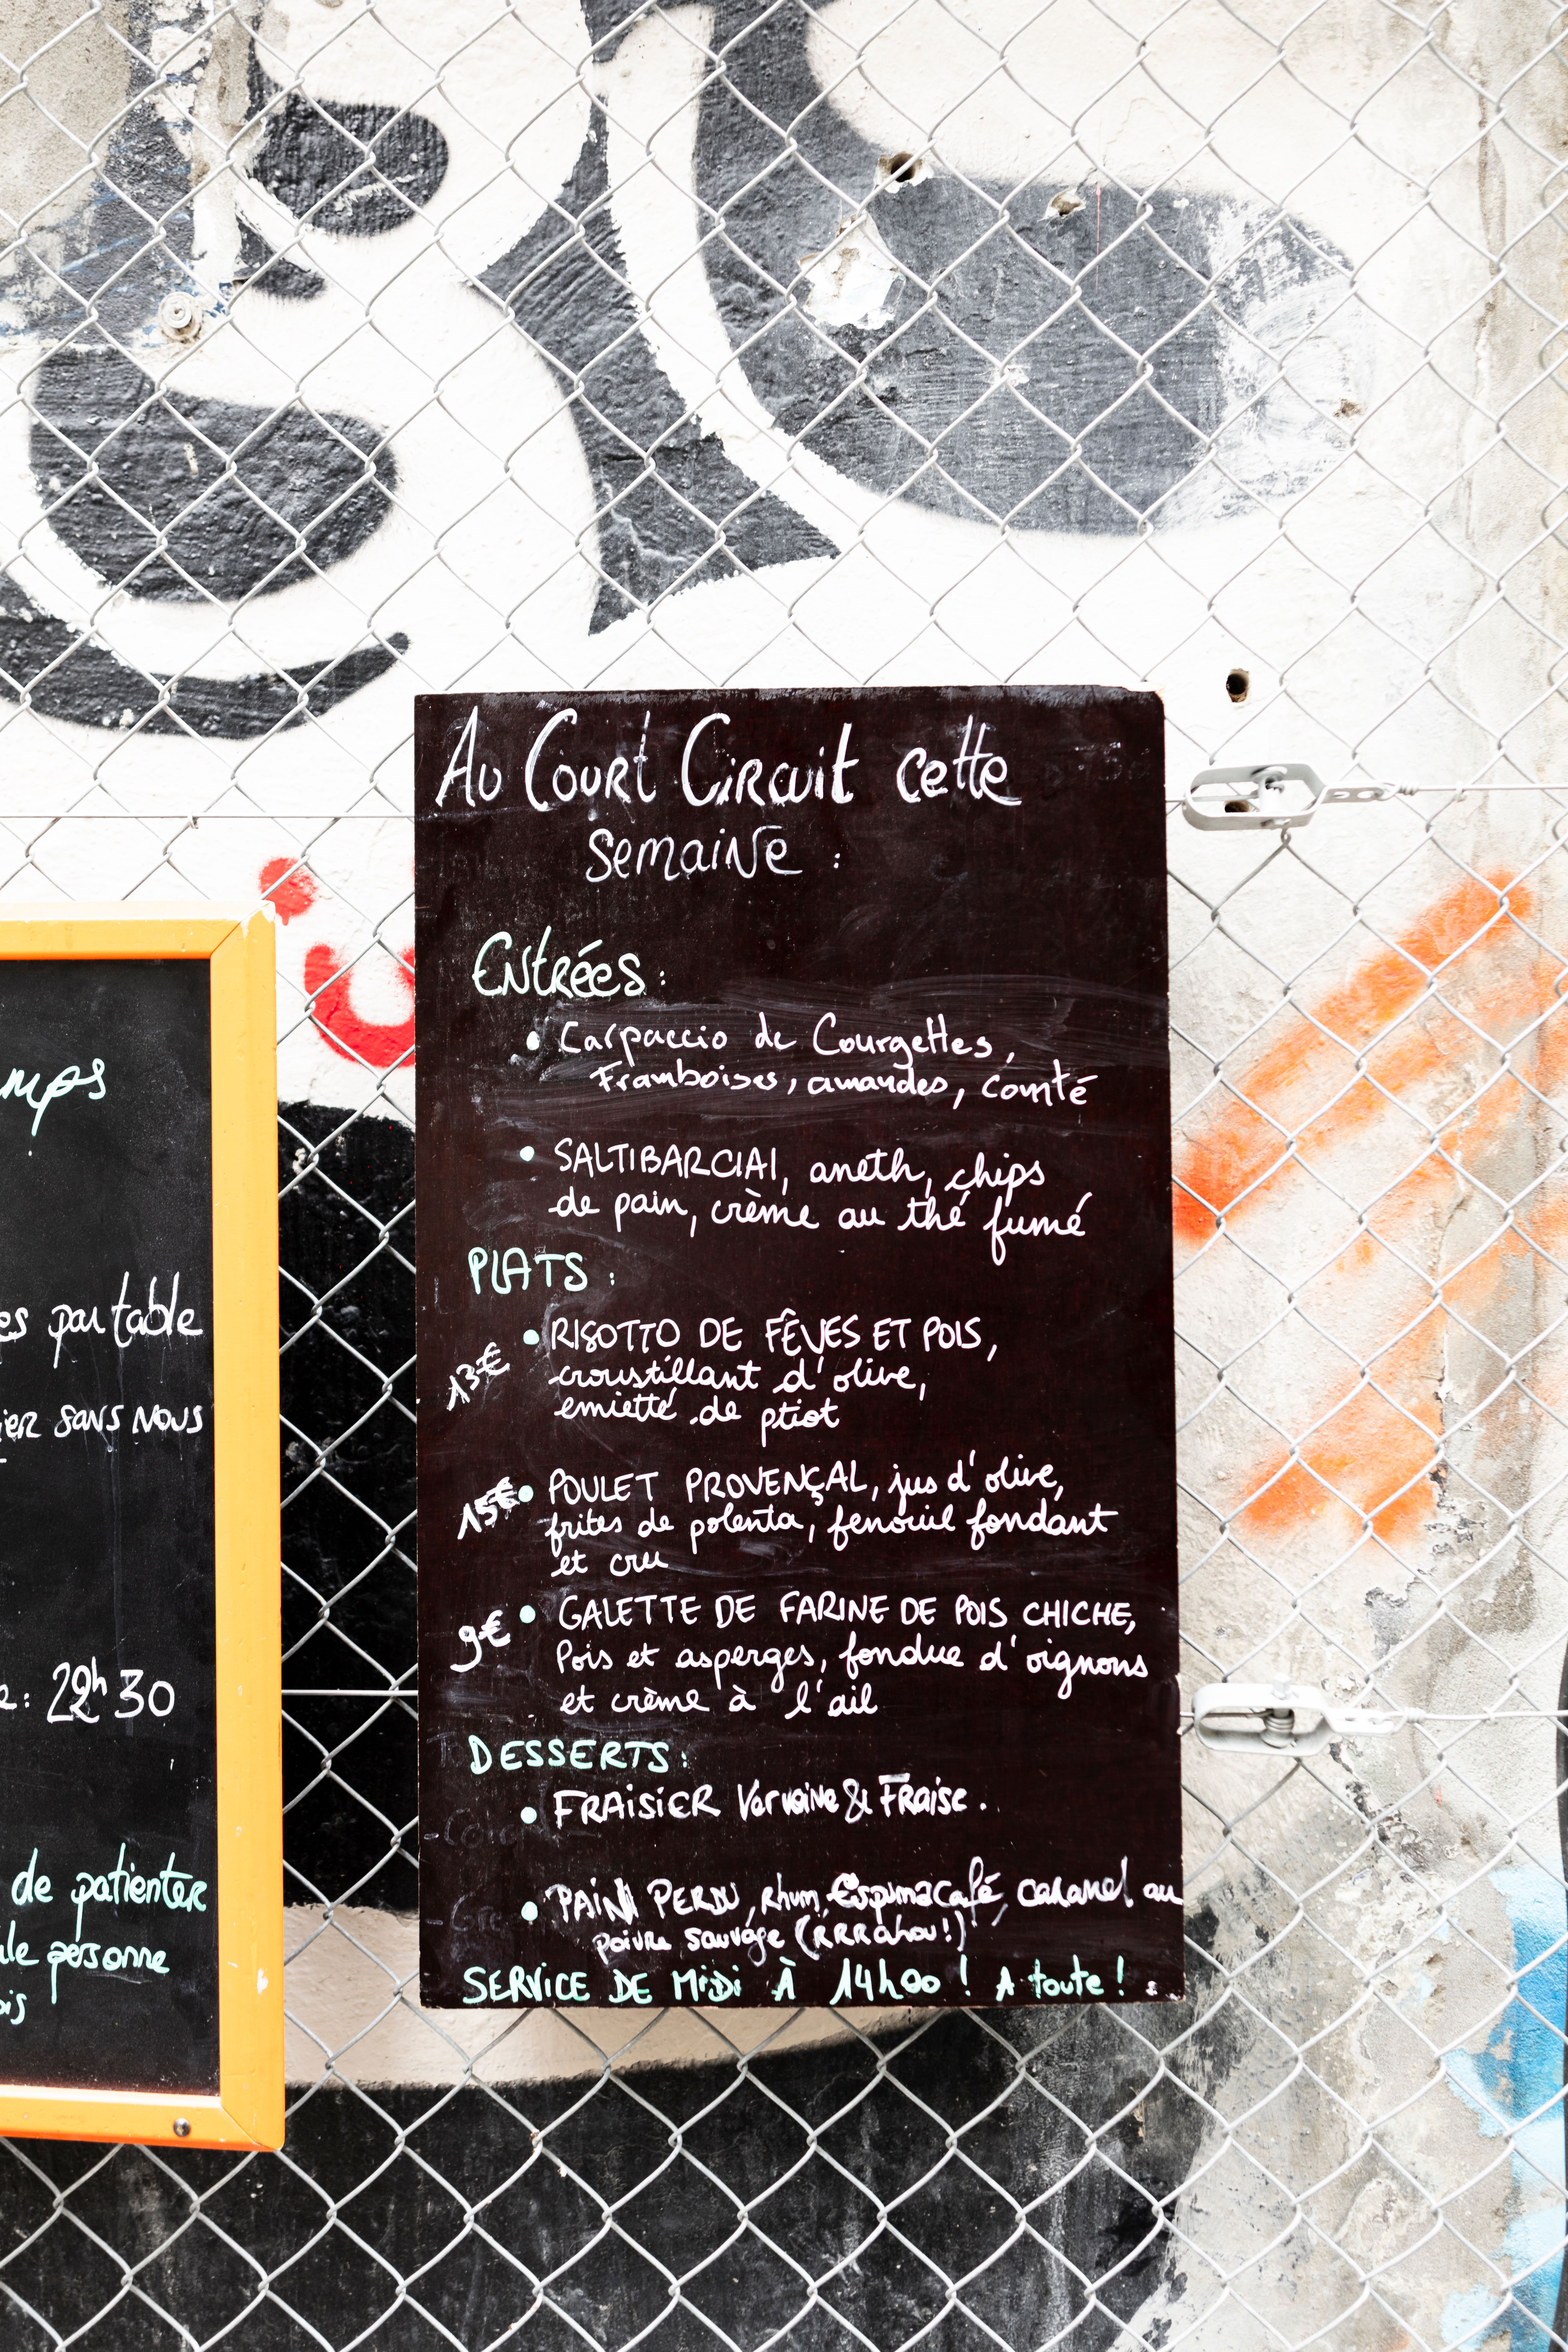 mps
es par table
ier SANS NOUS
22h30
de patienter
personne
Au Court Circuit cette
semaine :
Entrées :
• Carpaccio de Courgettes,
Framboises, amandes, comté
• SALTIBARCIAI, aneth, chips
de pain, crème au thé fumé
PLATS :
• RISOTTO DE FÊVES ET POIS,
13€
croustillant d'olive,
emietté de ptiot
15€ • POULET PROVENÇAL, jus d'olive,
frites de polenta, fenouil fondant
et cru
9€ • GALETTE DE FARINE DE POIS CHICHE,
Pois et asperges, fondue d'oignons
et crème à l'ail
DESSERTS :
• FRAISIER Verveine & Fraise.
• PAIN PERDU, rhum, Espuma Café, caramel au
poivre sauvage (RRRahou!)
SERVICE DE MIDI À 14h00 ! A toute !